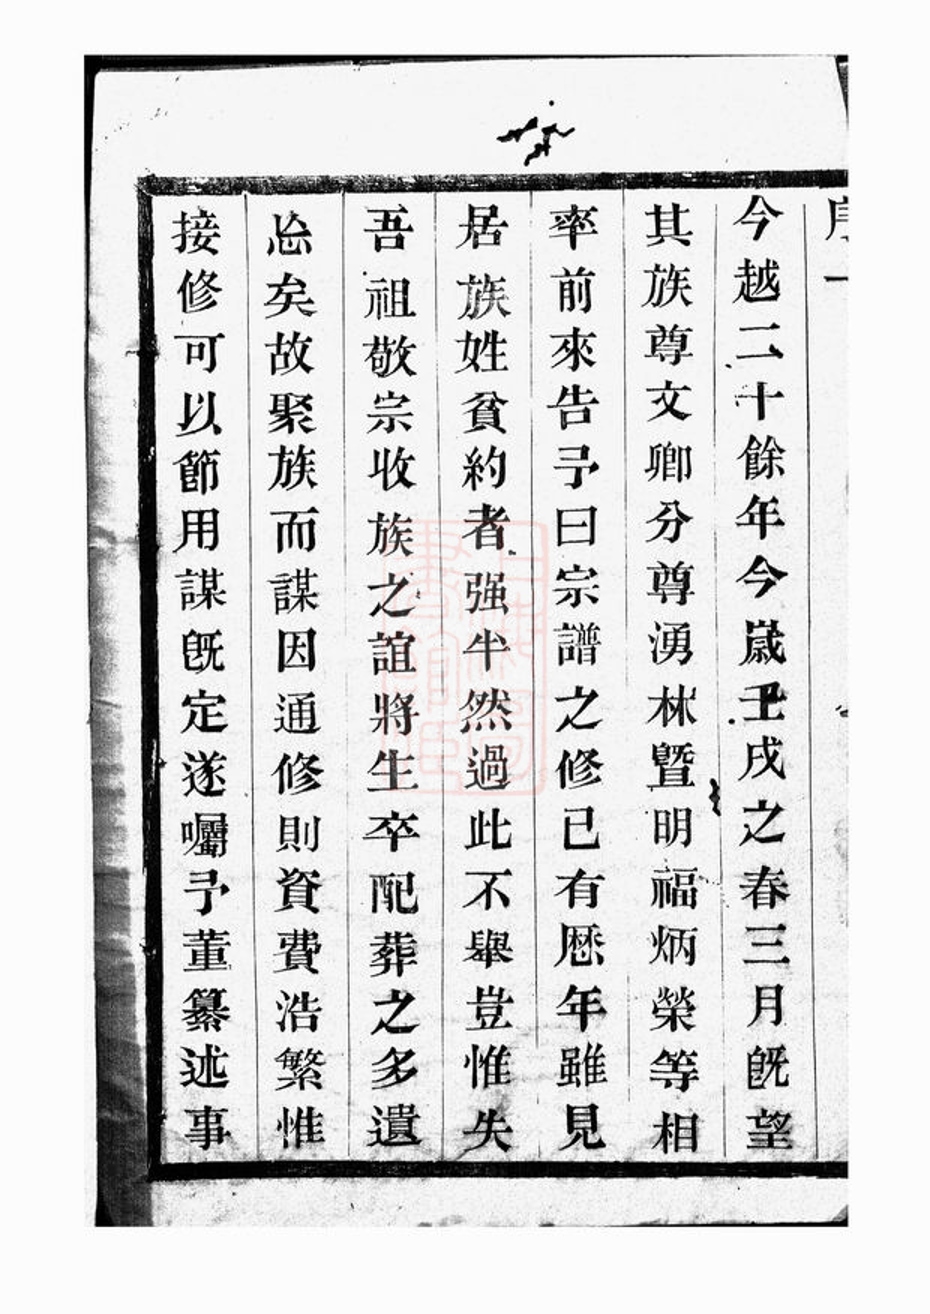 序一
今越二十餘年今嵗壬戌之春三月旣望
其族尊文卿分尊湧林曁明福炳榮等相
率前來告予曰宗譜之修已有歷年雖見
居族姓貧約者强半然過此不舉豈惟失
吾祖敬宗收族之誼將生卒配葬之多遺
忘矣故聚族而謀因通修則資費浩繁惟
接修可以節用謀旣定遂囑予董纂述事